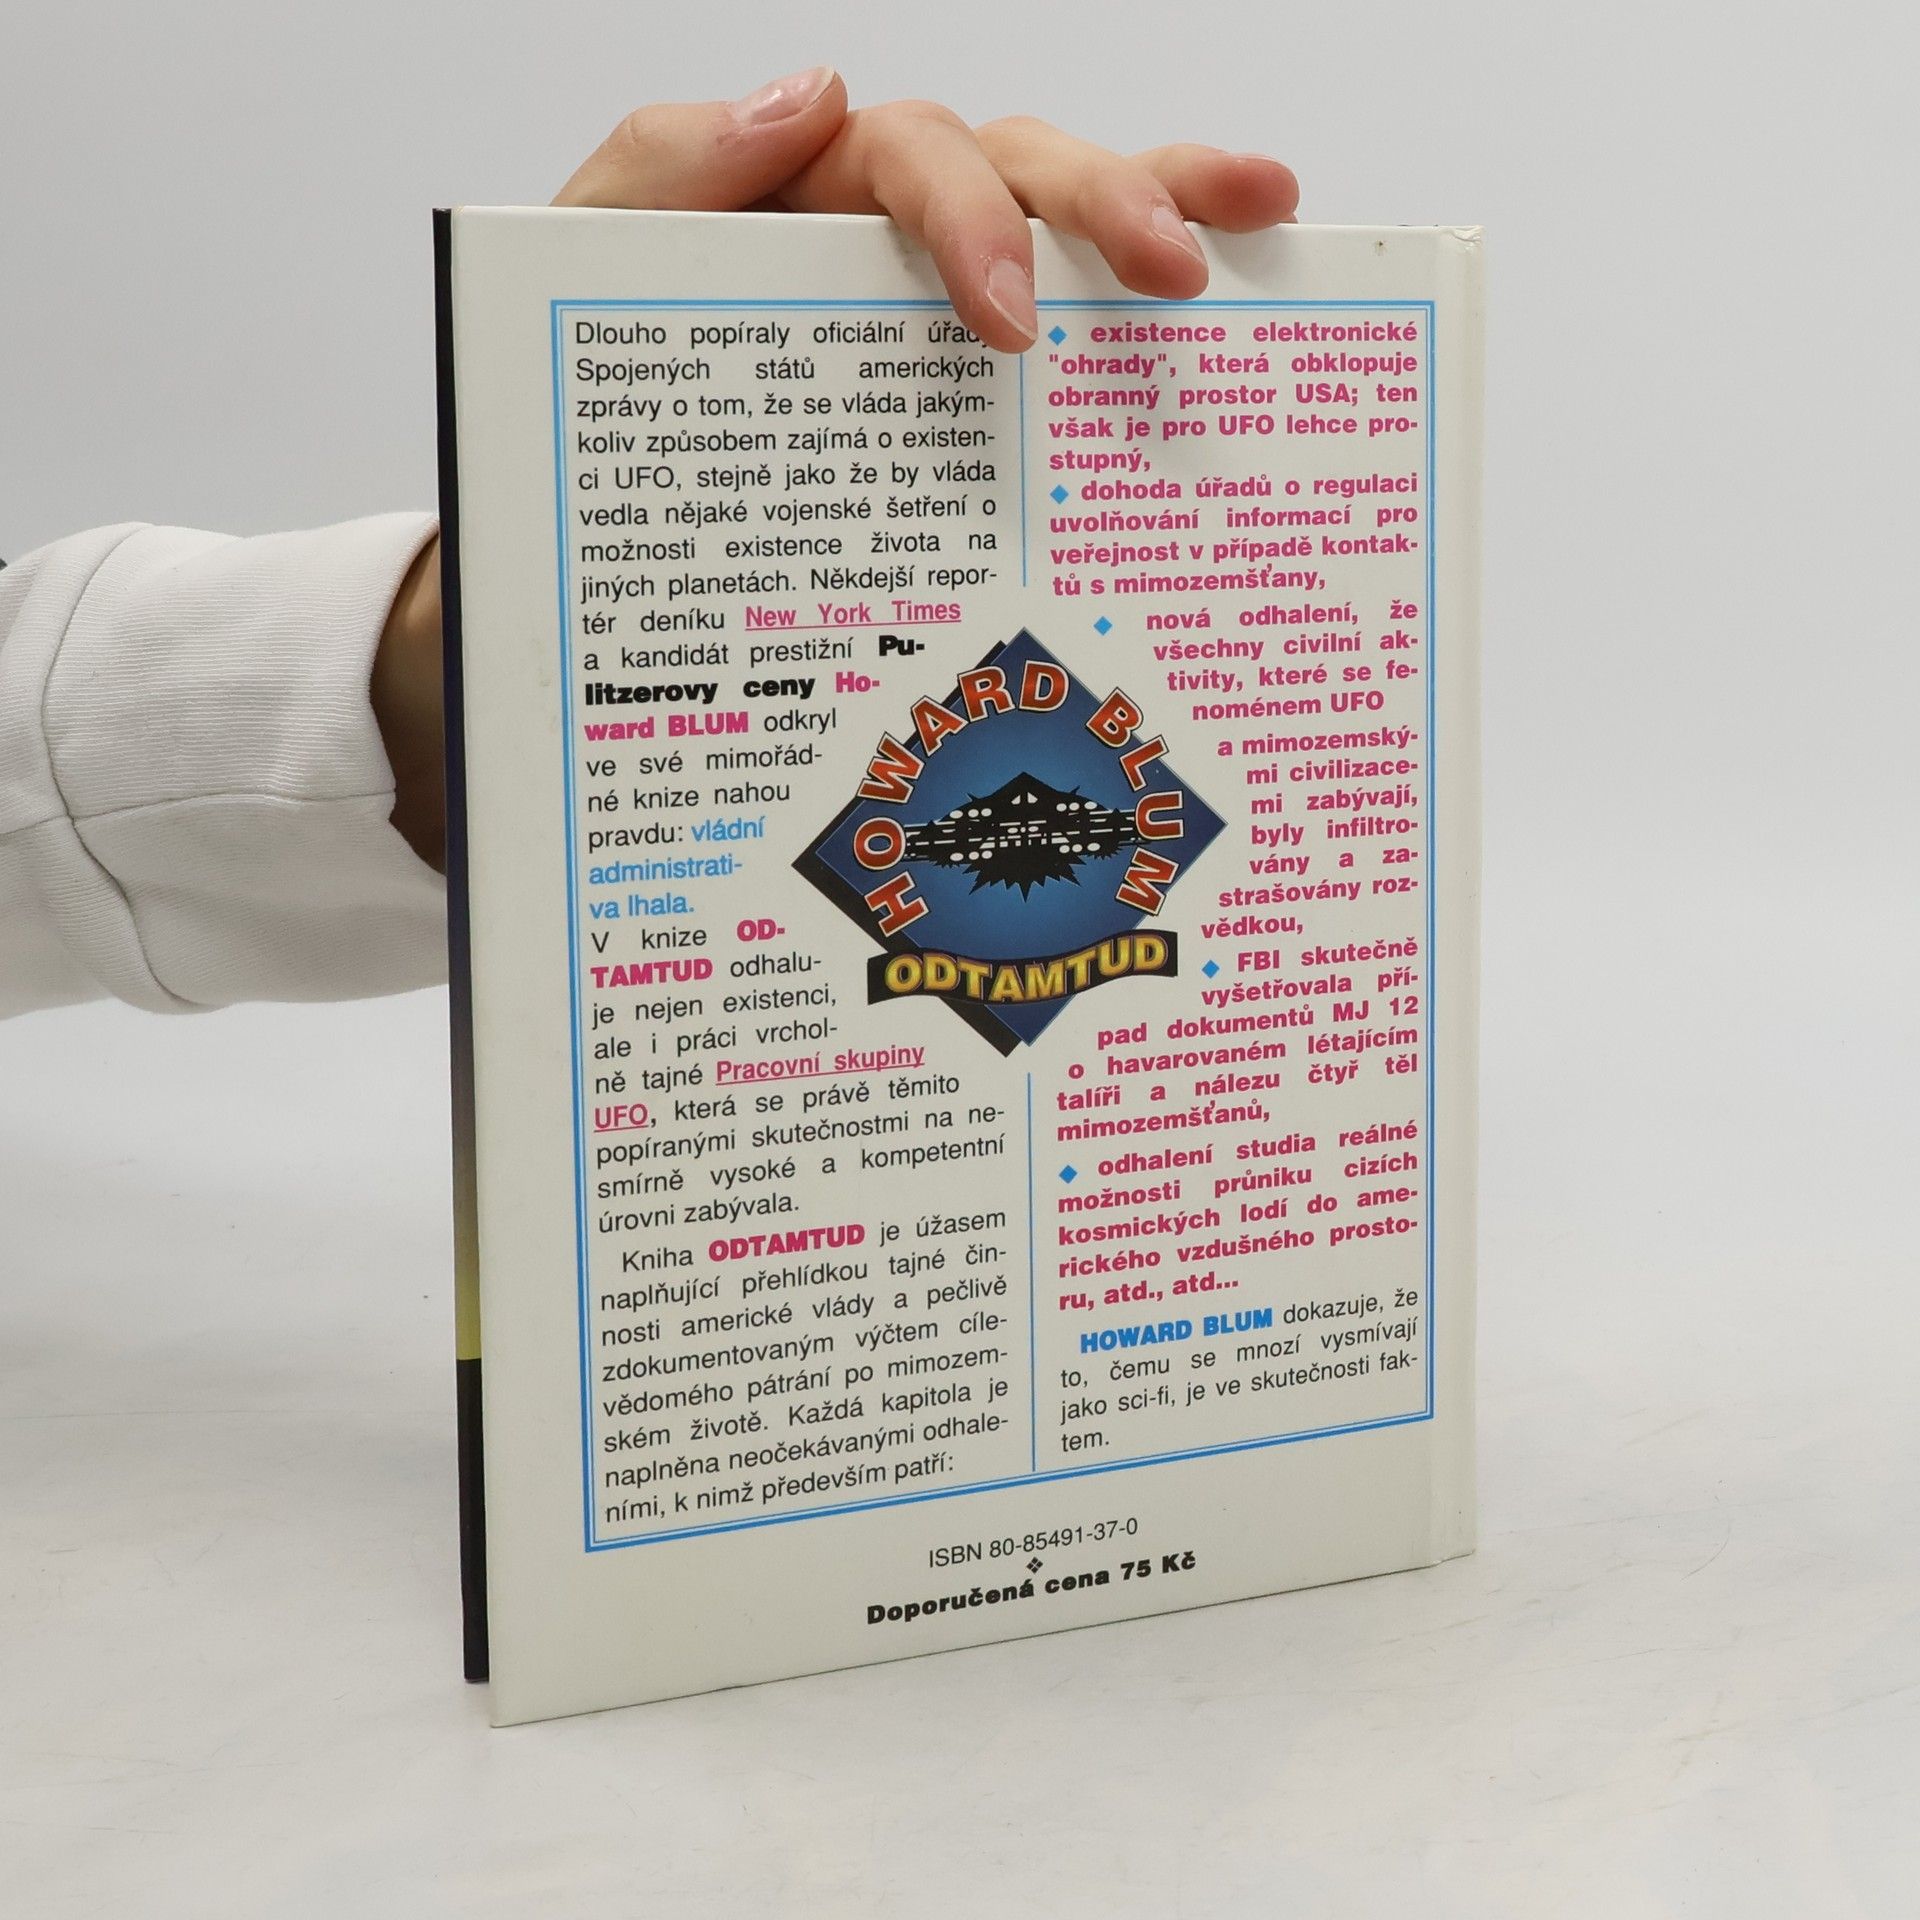 Dlouho popíraly oficiální úřady
Spojených států amerických
zprávy o tom, že se vláda jakým-
koliv způsobem zajímá o existen-
ci UFO, stejně jako že by vláda
vedla nějaké vojenské šetření o
možnosti existence života na
jiných planetách. Někdejší repor-
tér deníku New York Times
a kandidát prestižní Pu-
litzerovy ceny Ho-
ward BLUM odkryl
ve své mimořád-
né knize nahou
pravdu: vládní
administrati-
va lhala.
V knize OD-
TAMTUD odhalu-
je nejen existenci,
ale i práci vrchol-
ně tajné Pracovní skupiny
UFO, která se právě těmito
popíranými skutečnostmi na ne-
smírně vysoké a kompetentní
úrovni zabývala.
Kniha ODTAMTUD je úžasem
naplňující přehlídkou tajné čin-
nosti americké vlády a pečlivě
zdokumentovaným výčtem cíle-
vědomého pátrání po mimozem-
ském životě. Každá kapitola je
naplněna neočekávanými odhale-
ními, k nimž především patří:
HOWARD BLUM
ODTAMTUD
◆ existence elektronické
"ohrady", která obklopuje
obranný prostor USA; ten
však je pro UFO lehce pro-
stupný,
◆ dohoda úřadů o regulaci
uvolňování informací pro
veřejnost v případě kontak-
tů s mimozemšťany,
◆ nová odhalení, že
všechny civilní ak-
tivity, které se fe-
noménem UFO
a mimozemský-
mi civilizace-
mi zabývají,
byly infiltro-
vány a za-
strašovány roz-
vědkou,
◆ FBI skutečně
vyšetřovala pří-
pad dokumentů MJ 12
o havarovaném létajícím
talíři a nálezu čtyř těl
mimozemšťanů,
◆ odhalení studia reálné
možnosti průniku cizích
kosmických lodí do ame-
rického vzdušného prosto-
ru, atd., atd...
HOWARD BLUM dokazuje, že
to, čemu se mnozí vysmívají
jako sci-fi, je ve skutečnosti fak-
tem.
ISBN 80-85491-37-0
❖
Doporučená cena 75 Kč